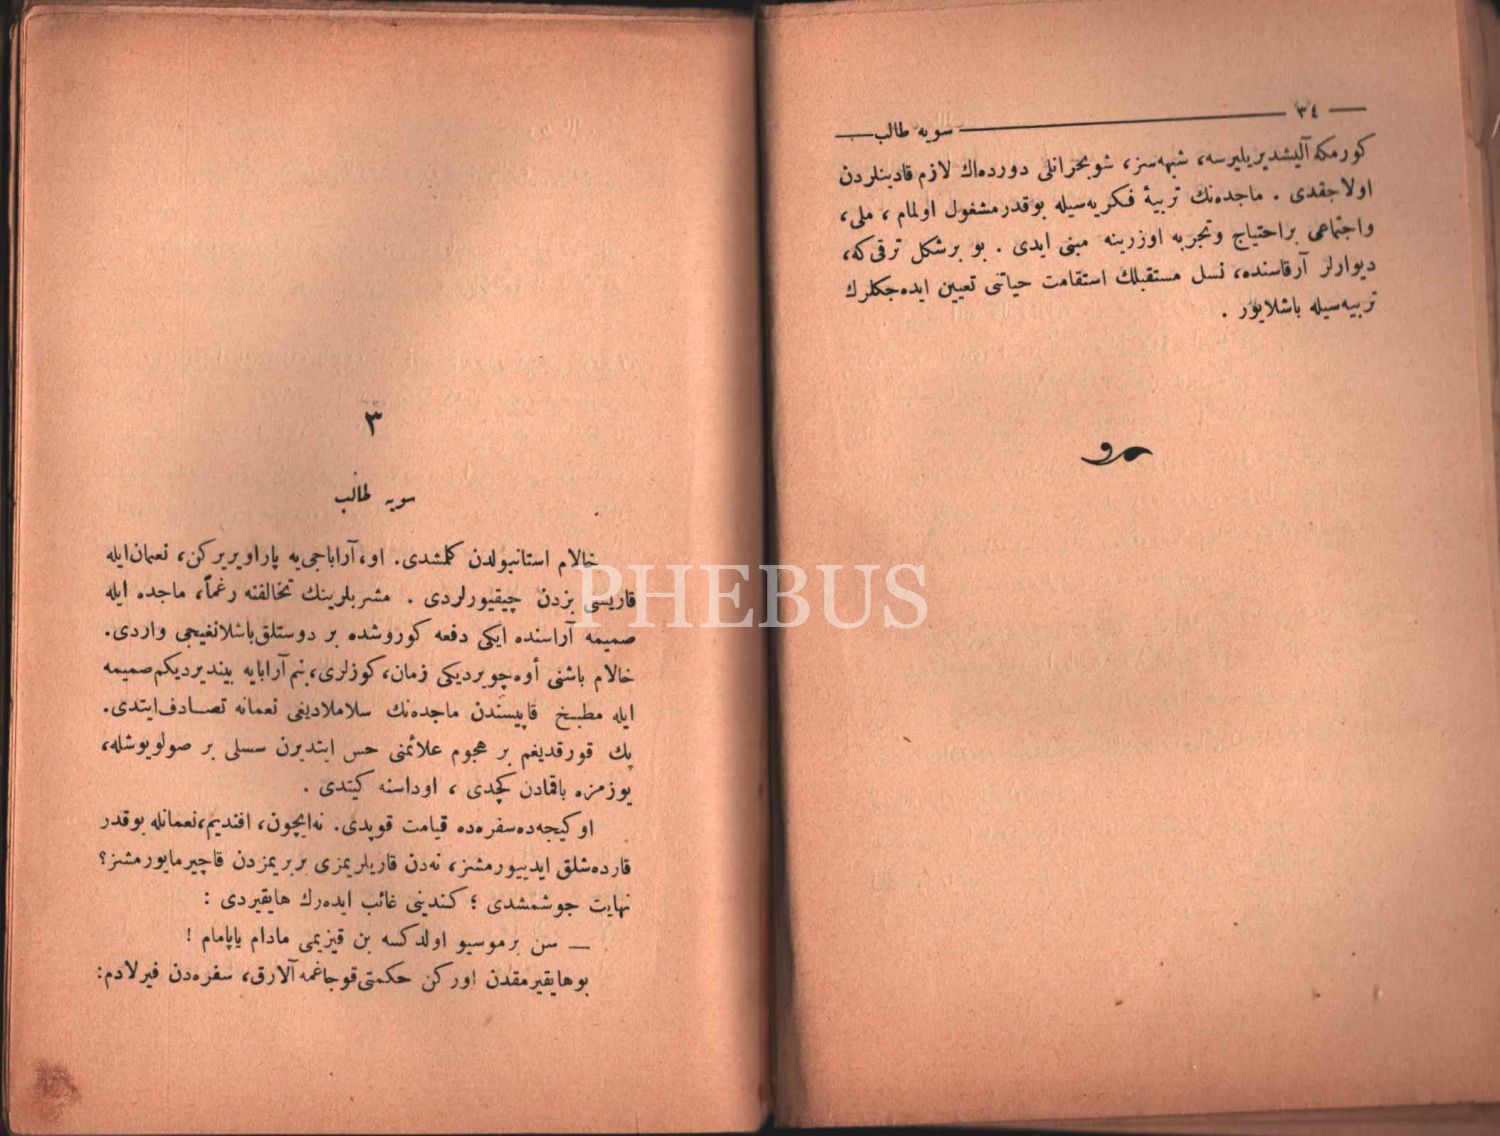 — ٣٤ —
سویه طالب
كورمكه آلیشدیریلیرسه، شبهه‌سز، شو بحرانلی دورده‌اك لازم قادینلردن
اولاجقدی . ماجده‌نك تربیهٔ فكریه‌سیله بوقدر مشغول اولمام ، ملی،
واجتماعی براحتیاج وتجربه اوزرینه مبنی ایدی . بو برشكل ترقی كه،
دیوارلر آرقاسنده، نسل مستقبلك استقامت حیاتنی تعیین ایده‌جكلرك
تربیه‌سیله باشلایور .
٣
سویه طالب
خالام استانبولدن كلمشدی. او، آراباجی‌یه پاراویریركن، نعمان‌ایله
قاریسی بزدن چیقیورلردی . مشربلرینك تخالفنه رغماً، ماجده ایله
صمیمه آراسنده ایكی دفعه كوروشده بر دوستلق‌باشلانغیجی واردی.
خالام باشنی أوه‌چویردیكی زمان، كوزلری، بنم‌آرابایه بیندیردیكم‌صمیمه
ایله مطبخ قاپیسندن ماجده‌نك سلاملادیغی نعمانه تصادف‌ایتدی.
پك قورقدیغم بر هجوم علائمنی حس ایتدیرن سسلی بر صولویوشله،
یوزمزه باقمادن كچدی ، اوداسنه كیتدی .
اوكیجه‌ده‌سفره‌ده قیامت قوپدی. نه‌ایچون، افندیم، نعمانله بوقدر
قارده‌شلق ایدییورمشز، نه‌دن قاریلریمزی بربریمزدن قاچیرمایورمشز؟
نهایت جوشمشدی ؛ كندینی غائب ایده‌رك هایقیردی :
— سن برموسیو اولدكسه بن قیزیمی مادام یاپامام !
بوهایقیرمقدن اوركن حكمتی‌قوجاغمه آلارق، سفره‌دن فیرلادم:
PHEBUS